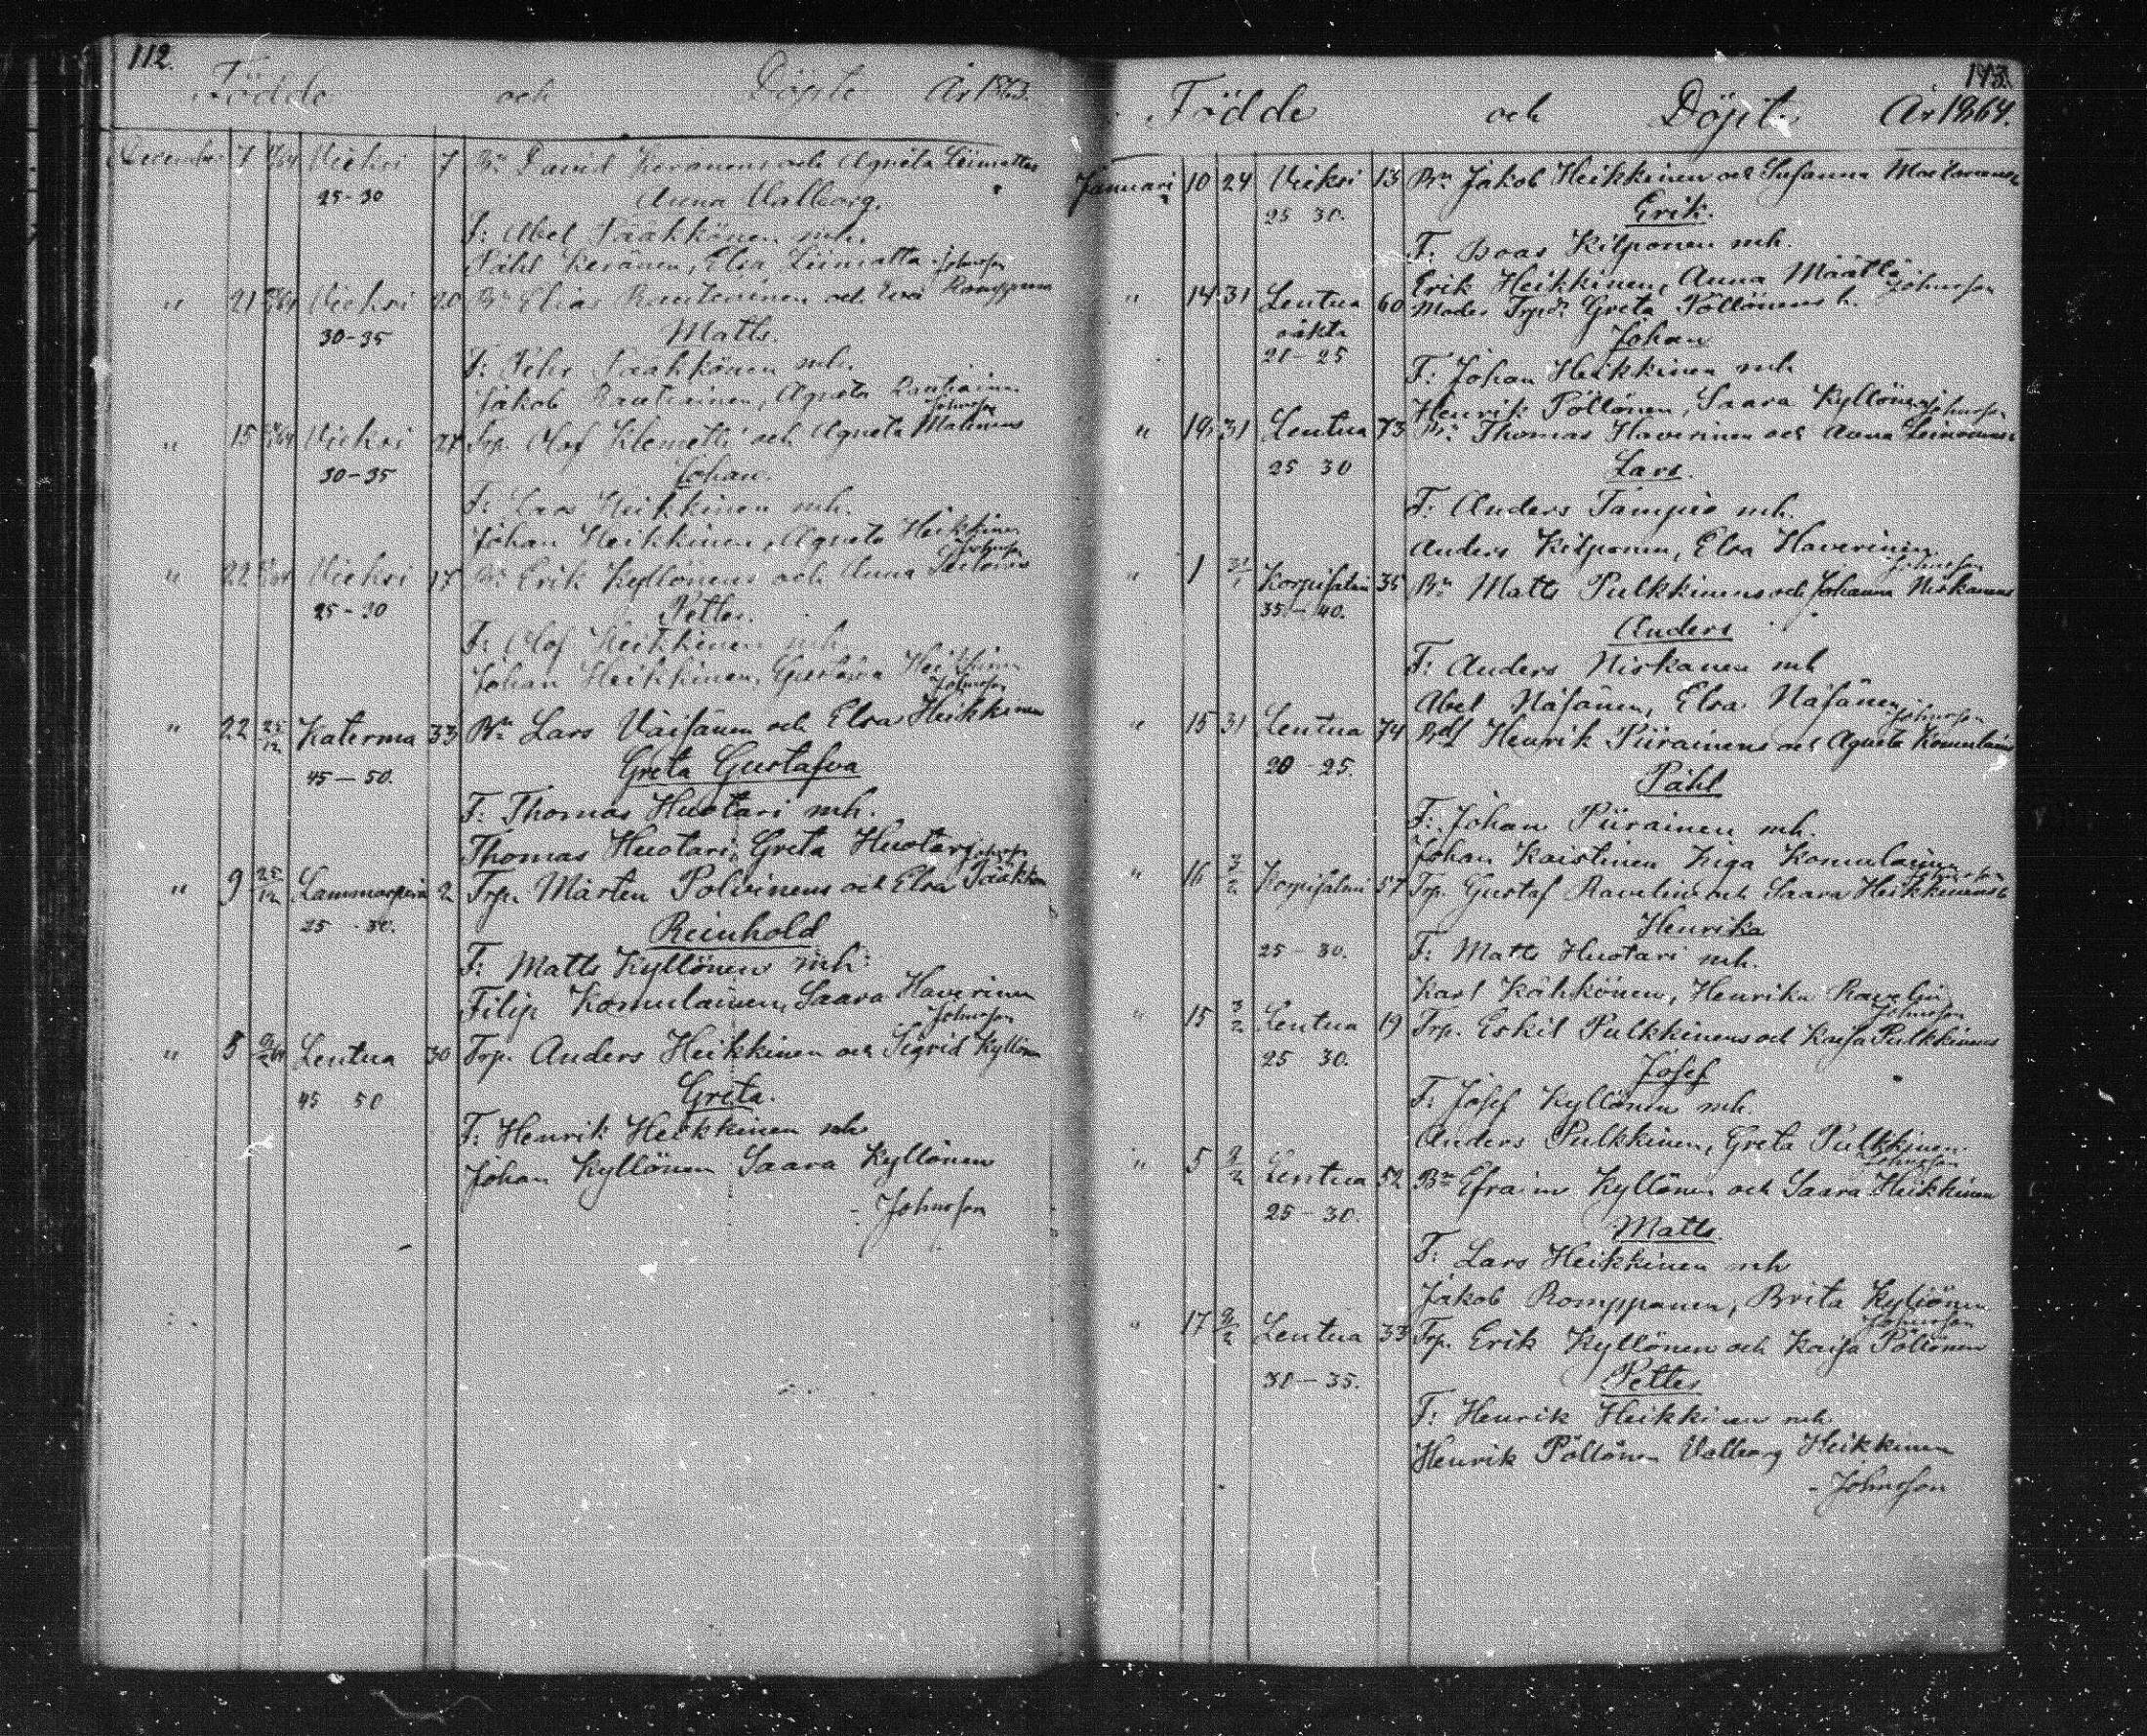 112.
Födde och Döpte År 1863.
December 7 Vieksi 7 Bn David Keränens och Agneta Liimattas
25-30 Anna Valborg.
F: Abel Pääkkönen mh.
Påhl Keränen, Elsa Liimatta Johnsson
" 21 Vieksi 20 Bn Elias Rautiainen och Romppanen
30-35 Matts.
F: Pehr Pääkkönen mh.
Jakob Rautiainen, Agneta Rautiainen
Johnsson
" 15 Vieksi Trp. Olof Klemetti och Agneta Malinens
30-35 Johan.
F: Lars Heikkinen mh.
Johan Heikkinen, Agneta Heikkinen
Johnsson
" 22 Vieksi 17 Bn Erik Kyllönens och Anna
25-30 Petter.
F: Olof Heikkinen mh
Johan Heikkinen, Gustava Heikkinen
Johnsson
" 22 25/12 Katerma 33 Bn Lars Väisänen och Elsa Heikkinen
45-50. Greta Gustafva
F: Thomas Huotari mh.
Thomas Huotari, Greta Huotari Johnsson
" 9 25/12 Lammasperä 2 Trp. Mårten Polvinens och Elsa Pääkkön
25-30. Reinhold
F: Matts Kyllönen mh:
Filip Komulainen, Saara Haverinen
Johnsson
" 5 Lentua 30 Trp. Anders Heikkinen och Sigrid Kyllönen
45 50 Greta.
F: Henrik Heikkinen mh
Johan Kyllönen Saara Kyllönen
- Johnsson
113.
Födde och Döpte År 1864.
Januari 10 24 Vieksi 13 Bn Jakob Heikkinen och Susanna
25 30. Erik.
F: Boas Kilponen mh.
Erik Heikkinen, Anna Määttä Johnsson
" 14 31 Lentua 60 Moder Trpd. Greta Pöllönens h.
oäkta Johan
21-25
F: Johan Heikkinen mh
Henrik Pöllönen, Saara Kyllönen Johnsson
" 19 31 Lentua 73 Bn Thomas Haverinen och Anna Leinonens
25 30 Lars.
F: Anders Tampio mh.
Anders Kilponen, Elsa Haverinen
Johnsson
" 1 31/1 Korpisalmi 35 Bn Matts Pulkkinens och Johanna Niskanens
35-40. Anders
F: Anders Niskanen mh
Abel Näsänen, Elsa Näsänen Johnsson
" 15 31 Lentua 74 Henrik Piirainens och Agneta Komulains
20-25. Påhl
F: Johan Piirainen mh.
Johan Kaistinen Kiga Komulainen
Johnsson
" 16 3/2 Korpisalmi 57 Trp. Gustaf Ravelin och Saara Heikkinens
Henrika
25-30. F: Matts Huotari mh.
Karl Kähkönen, Henrika Ravelin
Johnsson
" 15 3/2 Lentua 19 Trp. Eskil Pulkkinens och Kaisa Pulkkinens
25 30. Josef
F: Josef Kyllönen mh.
Anders Pulkkinen, Greta Pulkkinen
Johnsson
" 5 9/2 Lentua 52 Bn Efraim Kyllönen och Saara Heikkinen
25-30. Matts.
F: Lars Heikkinen mh
Jakob Romppanen, Brita Kyllönen
Johnsson
" 17 9/2 Lentua 33 Trp. Erik Kyllönen och Kaisa Pöllönen
30-35. Petter
F: Henrik Heikkinen mh
Henrik Pöllönen Valborg Heikkinen
- Johnsson